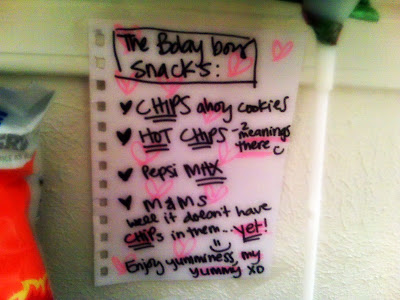 The Bday boy
snacks:
CHIPS ahoy cookies
HOT CHIPS - 2
meanings
there
Pepsi MAX
M&Ms
well it doesn't have
CHIPs in them... yet!
Enjoy yumminess, my
yummy XO